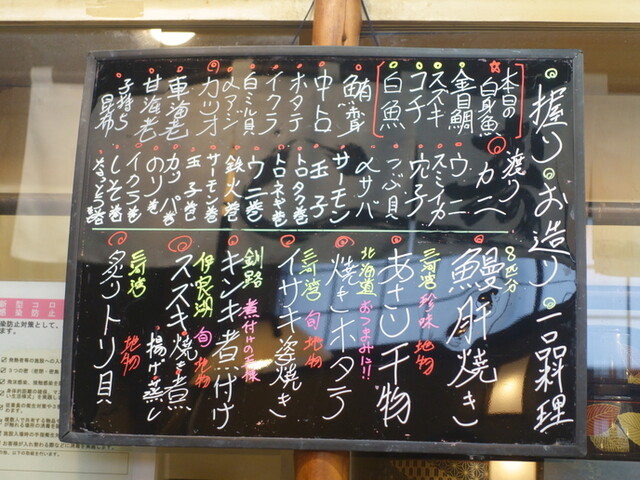 握り・お造り・一品料理
本日の白身魚
金目鯛
スズキ
コチ
白魚
鮪賽
中トロ
ホタテ
イクラ
白ミル貝
〆アジ
カツオ
車海老
甘海老
子持ち昆布
渡りカニ
ウニ
スミイカ
穴子
つぶ貝
〆サバ
サーモン
玉子
トロタク巻
トロネギ巻
ウニ巻
鉄火巻
サーモン巻
玉子巻
カッパ巻
のり巻
イクラ巻
しそ巻
なっとう巻
8匹分
鰻肝焼き
三河湾 珍味 地物
あさり干物
北海道 おつまみに!!
焼きホタテ
三河湾 旬 地物
イサキ姿焼き
釧路 煮付けの王様
キンキ煮付け
伊良湖 旬 地物
スズキ焼き煮
揚げ蒸し
三河湾 地物
炙りトリ貝
新型コロ
感染防止